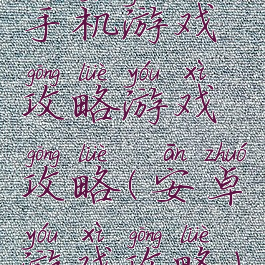 手机游戏
gōng lüè yóu xì
攻略游戏
gōng lüè ān zhuó
攻略(安卓
yóu xì gōng lüè
游戏攻略)